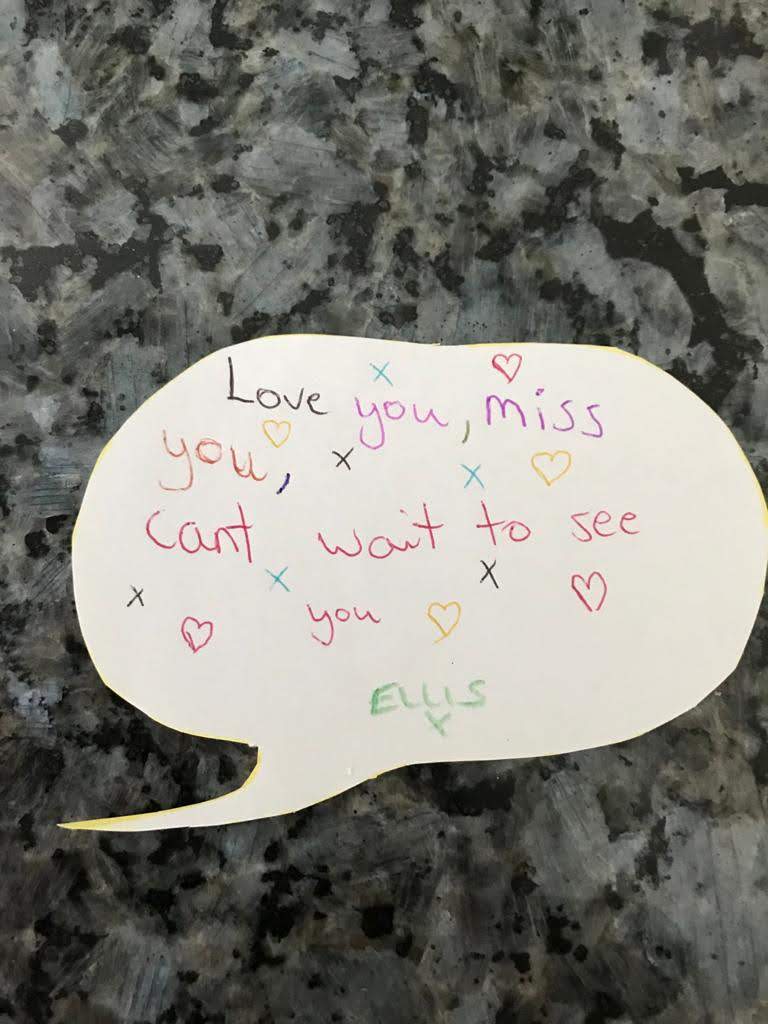 Love you, miss
you,
cant wait to see
you
ELLIS
x